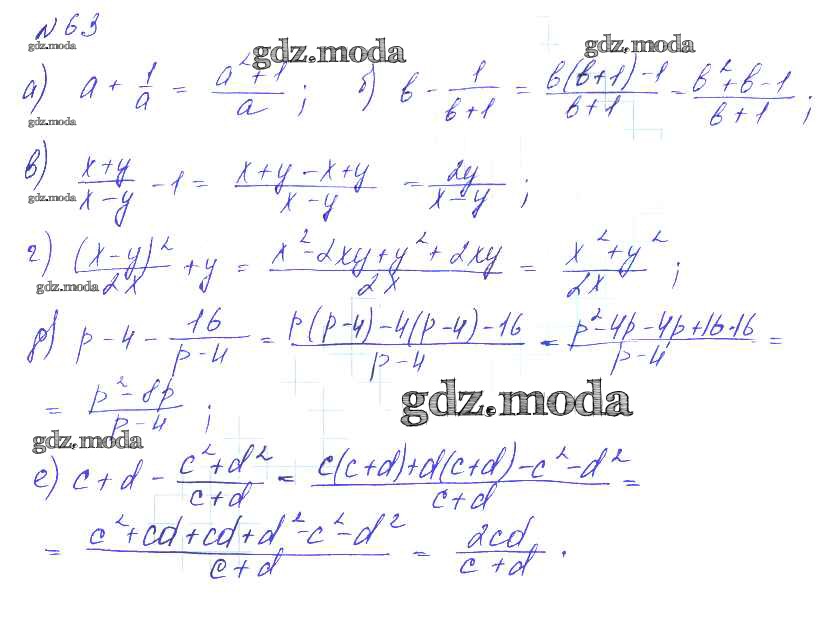 №63
gdz.moda gdz.moda gdz.moda
а) a + 1/a = (a²+1)/a ; б) в - 1/(в+1) = (в(в+1)-1)/(в+1) = (в²+в-1)/(в+1) ;
gdz.moda
в) (x+y)/(x-y) - 1 = (x+y-x+y)/(x-y) = 2y/(x-y) ;
gdz.moda
г) (x-y)²/2x + y = (x²-2xy+y²+2xy)/2x = (x²+y²)/2x ;
gdz.moda
д) p-4 - 16/(p-4) = (p(p-4)-4(p-4)-16)/(p-4) = (p²-4p-4p+16-16)/(p-4) =
= (p²-8p)/(p-4) ;
gdz.moda
gdz.moda
е) c+d - (c²+d²)/(c+d) = (c(c+d)+d(c+d)-c²-d²)/(c+d) =
= (c²+cd+cd+d²-c²-d²)/(c+d) = 2cd/(c+d) .